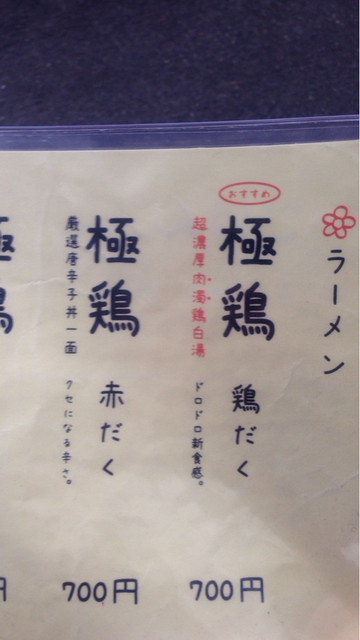 ラーメン
おすすめ
極鶏
鶏だく
超濃厚肉濁鶏白湯
ドロドロ新食感。
700円
極鶏
赤だく
厳選唐辛子丼一面
クセになる辛さ。
700円
極鶏
円